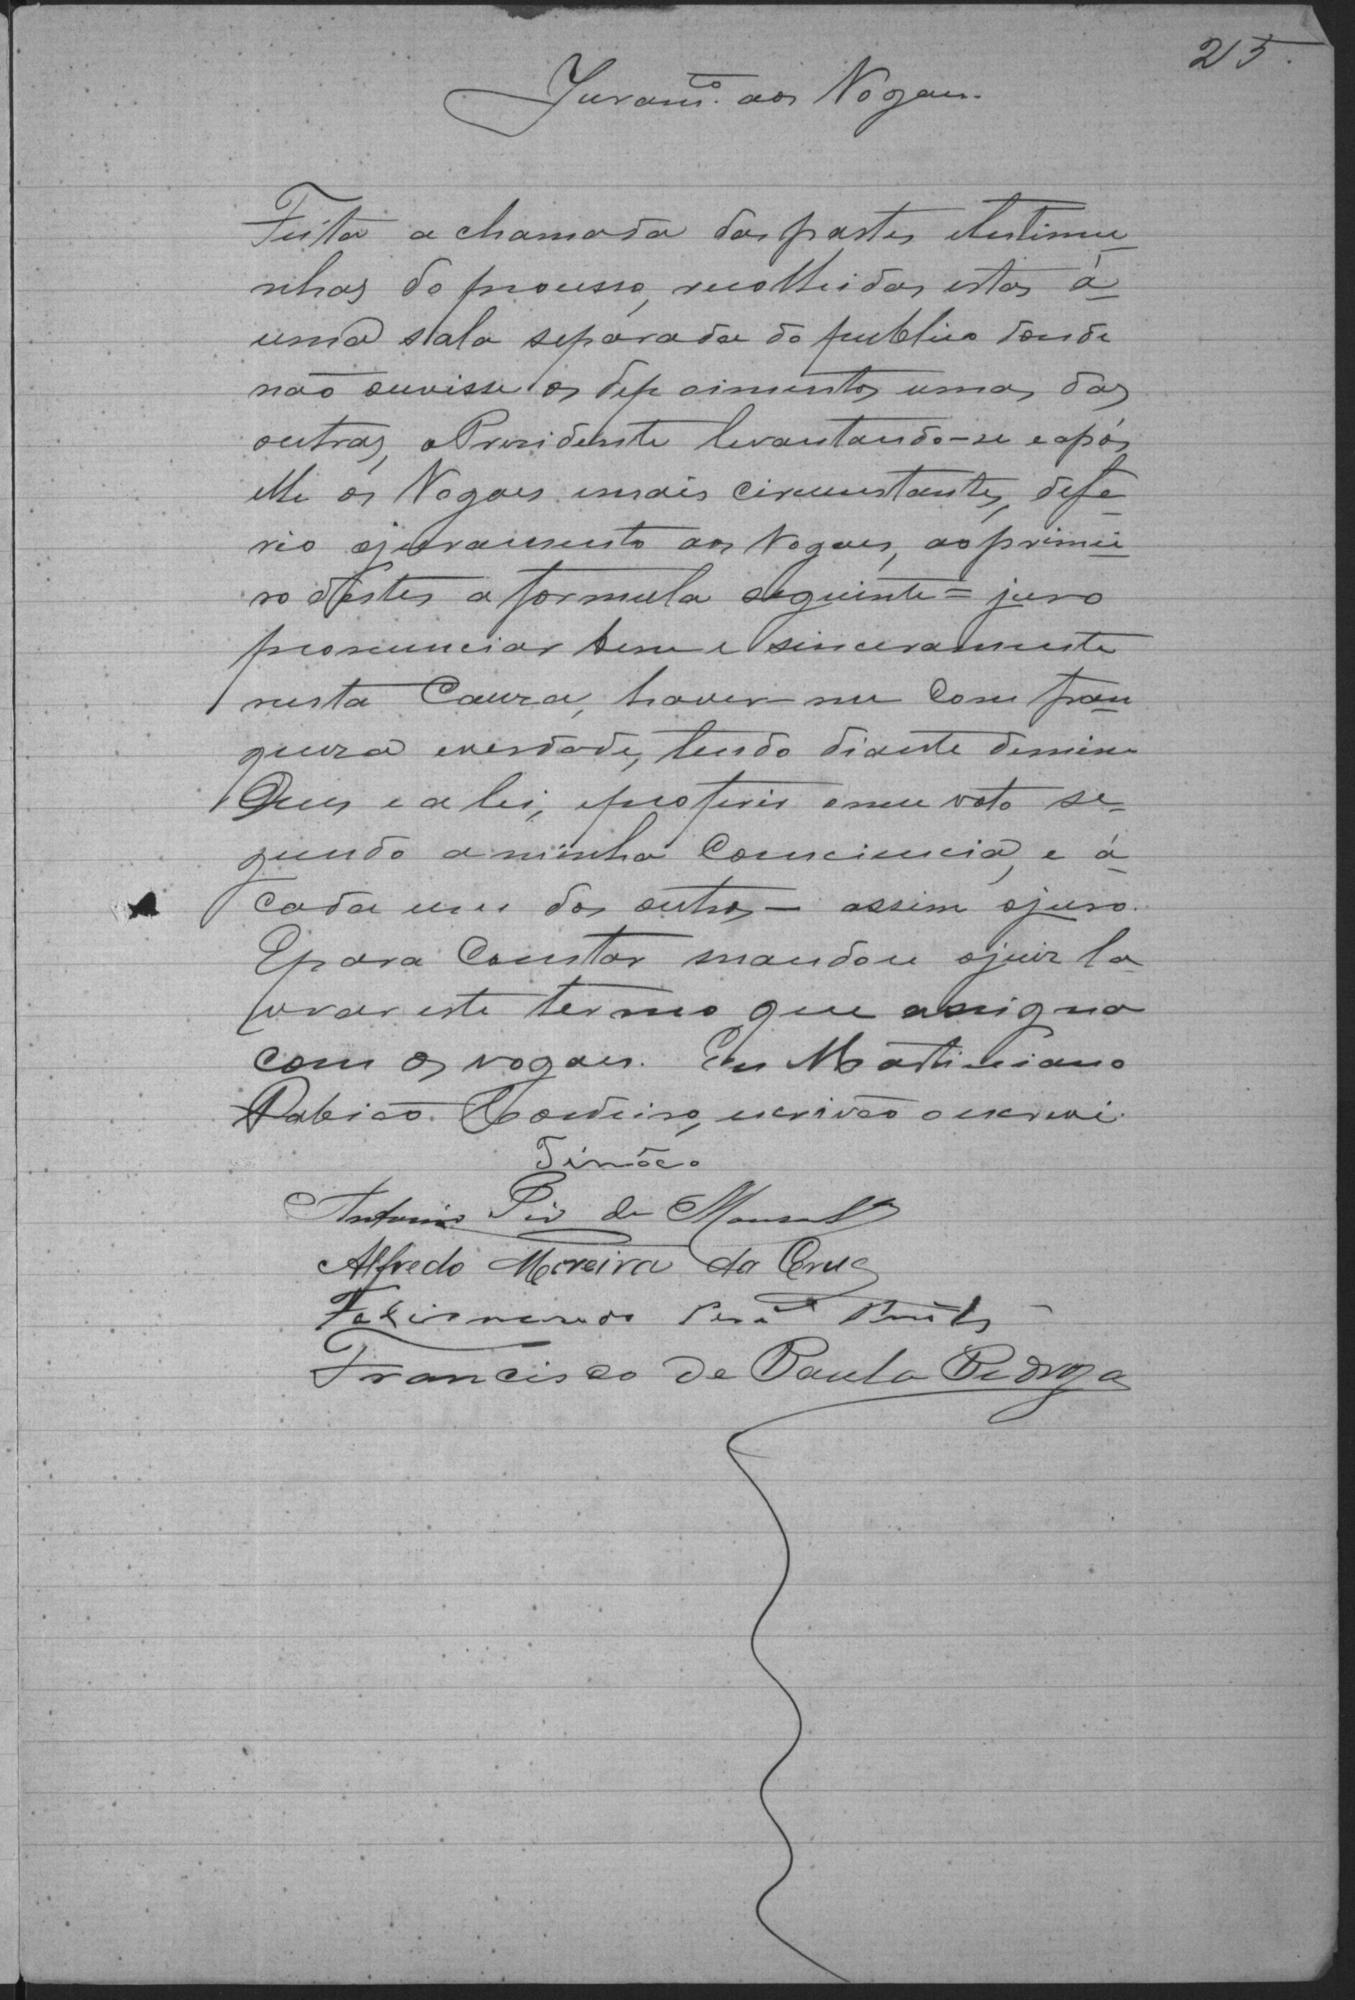 215.
Juram.to aos Vogaes.
Feita a chamada das partes e testimu=
nhas do processo, recolhidas estas á=
uma sala separada do publico donde
não ouvisse os depoimentos umas das
outras, o Presidente levantando-se e após
elle os Vogaes e mais circumstantes, defe=
rio o juramento aos Vogaes, ao primei=
ro destes a formula seguinte = juro
pronunciar bem e sinceramente
nesta Cauza, haver-me com fran=
queza e verdade, tendo diante de mim
Deus e a lei, e proferir o meu voto se=
gundo a minha Consciencia, e á=
cada um dos outros – assim o juro.
E para Constar mandou o juiz la=
vrar este termo que assigna
com os vogaes. Eu Martiniano
Cordeiro, escrivão o escrevi.
Tinôco
Antonio Pio de
Alfredo Moreira da Cruz
Francisco de Paula Pedroza